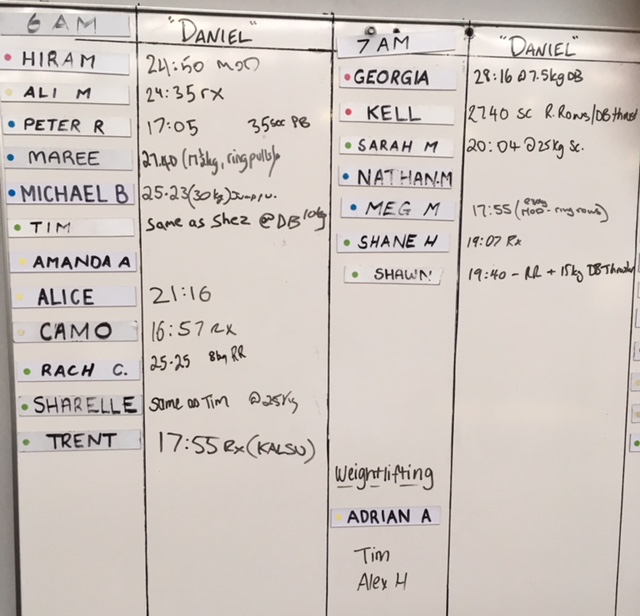 6 AM "DANIEL"
HIRAM 24:50 MOD
ALI M 24:35 rx
PETER R 17:05 35sec PB
MAREE 27.40 ring pulls
MICHAEL B 25-23 (30kg) Jump/u.
TIM Same as Shez @DB 10kg
AMANDA A
ALICE 21:16
CAMO 16:57 RX
RACH C. 25-25 8kg RR
SHARELLE Same as Tim @25kg
TRENT 17:55 Rx (KALSU)
7 AM "DANIEL"
GEORGIA 28:16 @7.5kg DB
KELL 2740 SC R.Rows/DB thrust
SARAH M 20:04 @25kg Sc.
NATHAN.M
MEG M 17:55 (MOD - ring rows)
SHANE H 19:07 Rx
SHAWN 19:40 - RR + 15kg DB Thruster
Weightlifting
ADRIAN A
Tim
Alex H